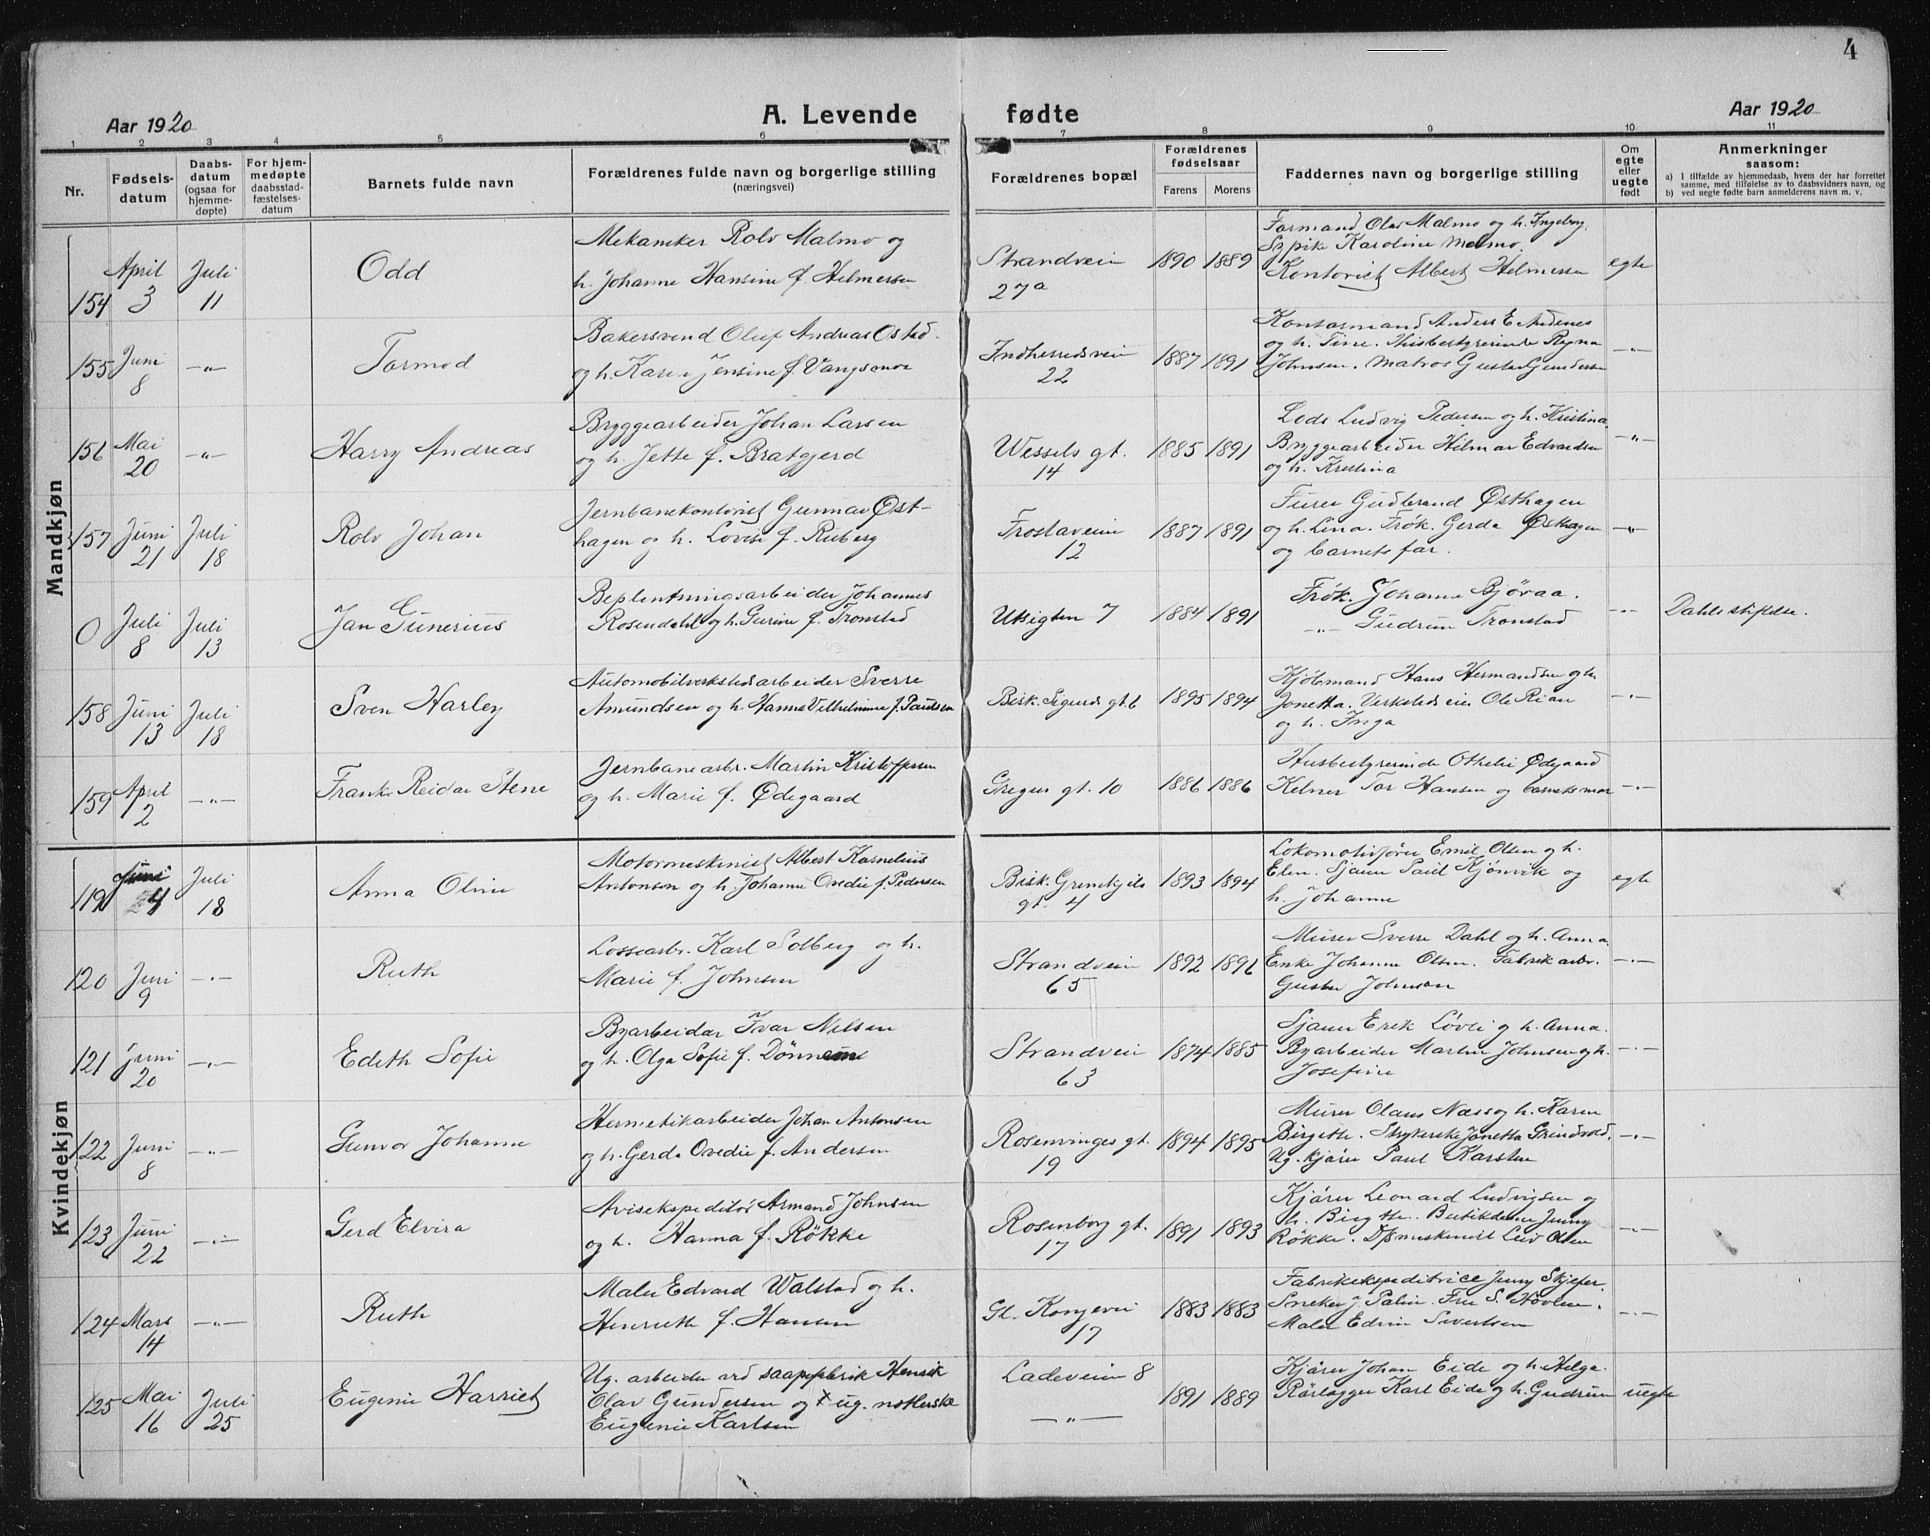 4
Aar 1920
A. Levende fødte
Aar 1920
1 2 3 4 5 6 7 8 9 10 11
Nr.
Fødsels-
datum
Daabs-
datum
(ogsaa for
hjemme-
døpte)
For hjem-
medøpte
daabsstad-
fæstelses-
datum
Barnets fulde navn
Forældrenes fulde navn og borgerlige stilling
(næringsvei)
Forældrenes bopæl
Forældrenes
fødselsaar
Farens
Morens
Faddernes navn og borgerlige stilling
Om
egte
eller
uegte
født
Anmerkninger
saasom:
a) I tilfælde av hjemmedaab, hvem der har forrettet
samme, med tilføielse av to daabsvidners navn, og
b) ved uegte fødte barn anmelderens navn m. v.
Mandkjøn
154 April 3 Juli 11 Odd
Mekaniker Rolv Malmo og
h. Johanne Hansine f. Helmersen
Strandveien 27a 1890 1889
Formand Olav Malmo og h. Ingeborg.
Karoline Malmo.
Kontorist Albert Helmersen
egte
155 Juni 8 -"- Tormod
Bakersvend Oluf Andreas Ostad
og h. Karen Jensine f. Vangsmoe
Indherredsveien 22 1887 1891
Anders E.
og h. Tine. Husbestyrerinde Regna
Johnsen. Matros Gustav Gundersen
-"-
156 Mai 20 -"- Harry Andreas
Bryggearbeider Johan Larsen
og h. Jette f. Bratgjerd
Wessels gt. 14 1885 1891
Lods Ludvig Pedersen og h. Kristina.
Bryggearbeider Hilmar Edvardsen
og h. Kristina
-"-
157 Juni 21 Juli 18 Rolv Johan
Jernbanekontorist Gunnar Øst-
hagen og h. Lovise f. Ruberg
Frostaveien 12 1887 1891
Furer Gudbrand Østhagen
og h. Lina. Frøk. Gerda Østhagen
og barnets far.
-"-
0 Juli 8 Juli 13 Jan Gunerius
Beplantningsarbeider Johannes
Rosendahl og h. Gurine f. Tronstad
Utsigten 7 1884 1891
Frøk. Johanne Bjøraa.
-"- Gudrun Tronstad
-"-
Dahls stiftelse.
158 Juni 13 Juli 18 Sven Harley
Automobilverkstedsarbeider Sverre
Amundsen og h. Hanna Vilhelmine f. Paulsen
Bisk. Sigurds gt. 6 1895 1894
Kjøbmand Hans Hermandsen og h.
Jonetta. Verkstedseier Ole Rian
og h. Inga
-"-
159 April 2 -"- Frank Reidar Stene
Jernbanearbr. Martin Kristoffersen
og h. Marie f. Ødegaard
Gregus gt. 10 1886 1886
Husbestyrerinde Othelie Ødegaard
Kelner Tor Hansen og barnets mor
-"-
Kvindekjøn
119 Juni 4 Juli 18 Anna Oline
Motormaskinist Albert Kornelius
Antonsen og h. Johanne Ovedie f. Pedersen
Bisk. Grimkjels gt. 4 1893 1894
Lokomotivfører Emil Olsen og h.
Elen. Sjauer Paul Kjønvik og
h. Johanne
egte
120 Juni 9 -"- Ruth
Lossearbr. Karl Solberg og h.
Marie f. Johnsen
Strandveien 65 1892 1896
Murer Sverre Dahl og h. Anna.
Enke Johanne Olsen. Fabrikarbr.
Gustav Johnson
-"-
121 Juni 20 -"- Edith Sofie
Byarbeidar Ivar Nilsen
og h. Olga Sofie f. Dønnem
Strandveien 63 1874 1885
Sjauer Erik Løvli og h. Anna.
Byarbeider Martin Johnsen og h.
Josefine
-"-
122 Juni 8 -"- Gunvor Johanne
Hermetikarbeider Johan Antonsen
og h. Gerda Ovedie f. Andersen
Rosenvinges gt. 19 1894 1895
Murer Olaus Næss og h. Karen
Birgithe. Strykerske Jonetta Grindvold.
Ug. kjører Paul Karsten
-"-
123 Juni 22 -"- Gerd Elvira
Avisekspeditør Armand Johnsen
og h. Hanna f. Røkke
Rosenborg gt. 17 1891 1893
Kjører Leonard Ludvigsen og
h. Birgithe. Butikdame Jenny
Røkke. Dpsmaskinist Leif Olsen
-"-
124 Mars 14 -"- Ruth
Maler Edvard Walstad og h.
Henriette f. Hansen
Gl. Kongevei 17 1883 1883
Fabrikekspeditrice Jenny Skjefer.
Sneker J. Palin. Fru S. Hovlem.
Maler Edvin Sivertsen
-"-
125 Mai 16 Juli 25 Eugenie Harriet
Ug. arbeider ved saapefabrik Henrik
Olav Gundersen og ug.
Eugenie Karlsen
Ladeveien 8 -"- 1891 1889
Kjører Johan Eide og h. Helga.
Rørlægger Karl Eide og h. Gudrun
uegte